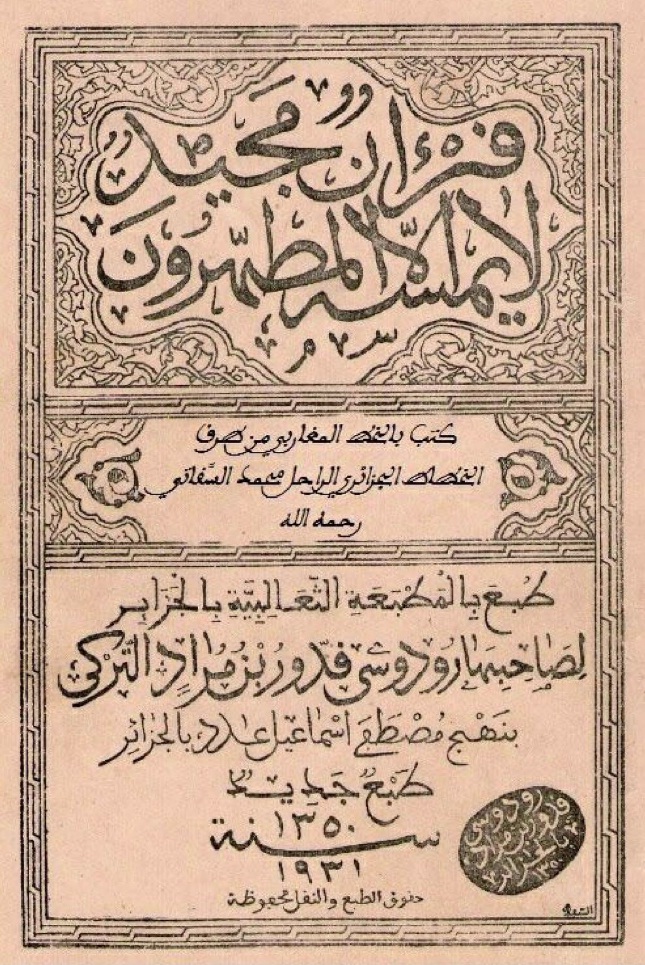 فرءان مجيد
لا يمسه الا المطهرون
كتب بالخط المغاربي من طرف
الخطاط الجزائري الراحل محمد السفاتي
رحمه الله
طبع بالمطبعة الثعالبية بالجزاير
لصاحبها رودوسي فدور بن مراد التركي
بنهج مصطفى اسماعيل بالجزائر
طبع جديد
سنة ١٣٥٠
١٩٣١
حقوق الطبع والنقل محفوظة
رودوسي
فدور بن مراد
بالجزاير
١٣٥٠